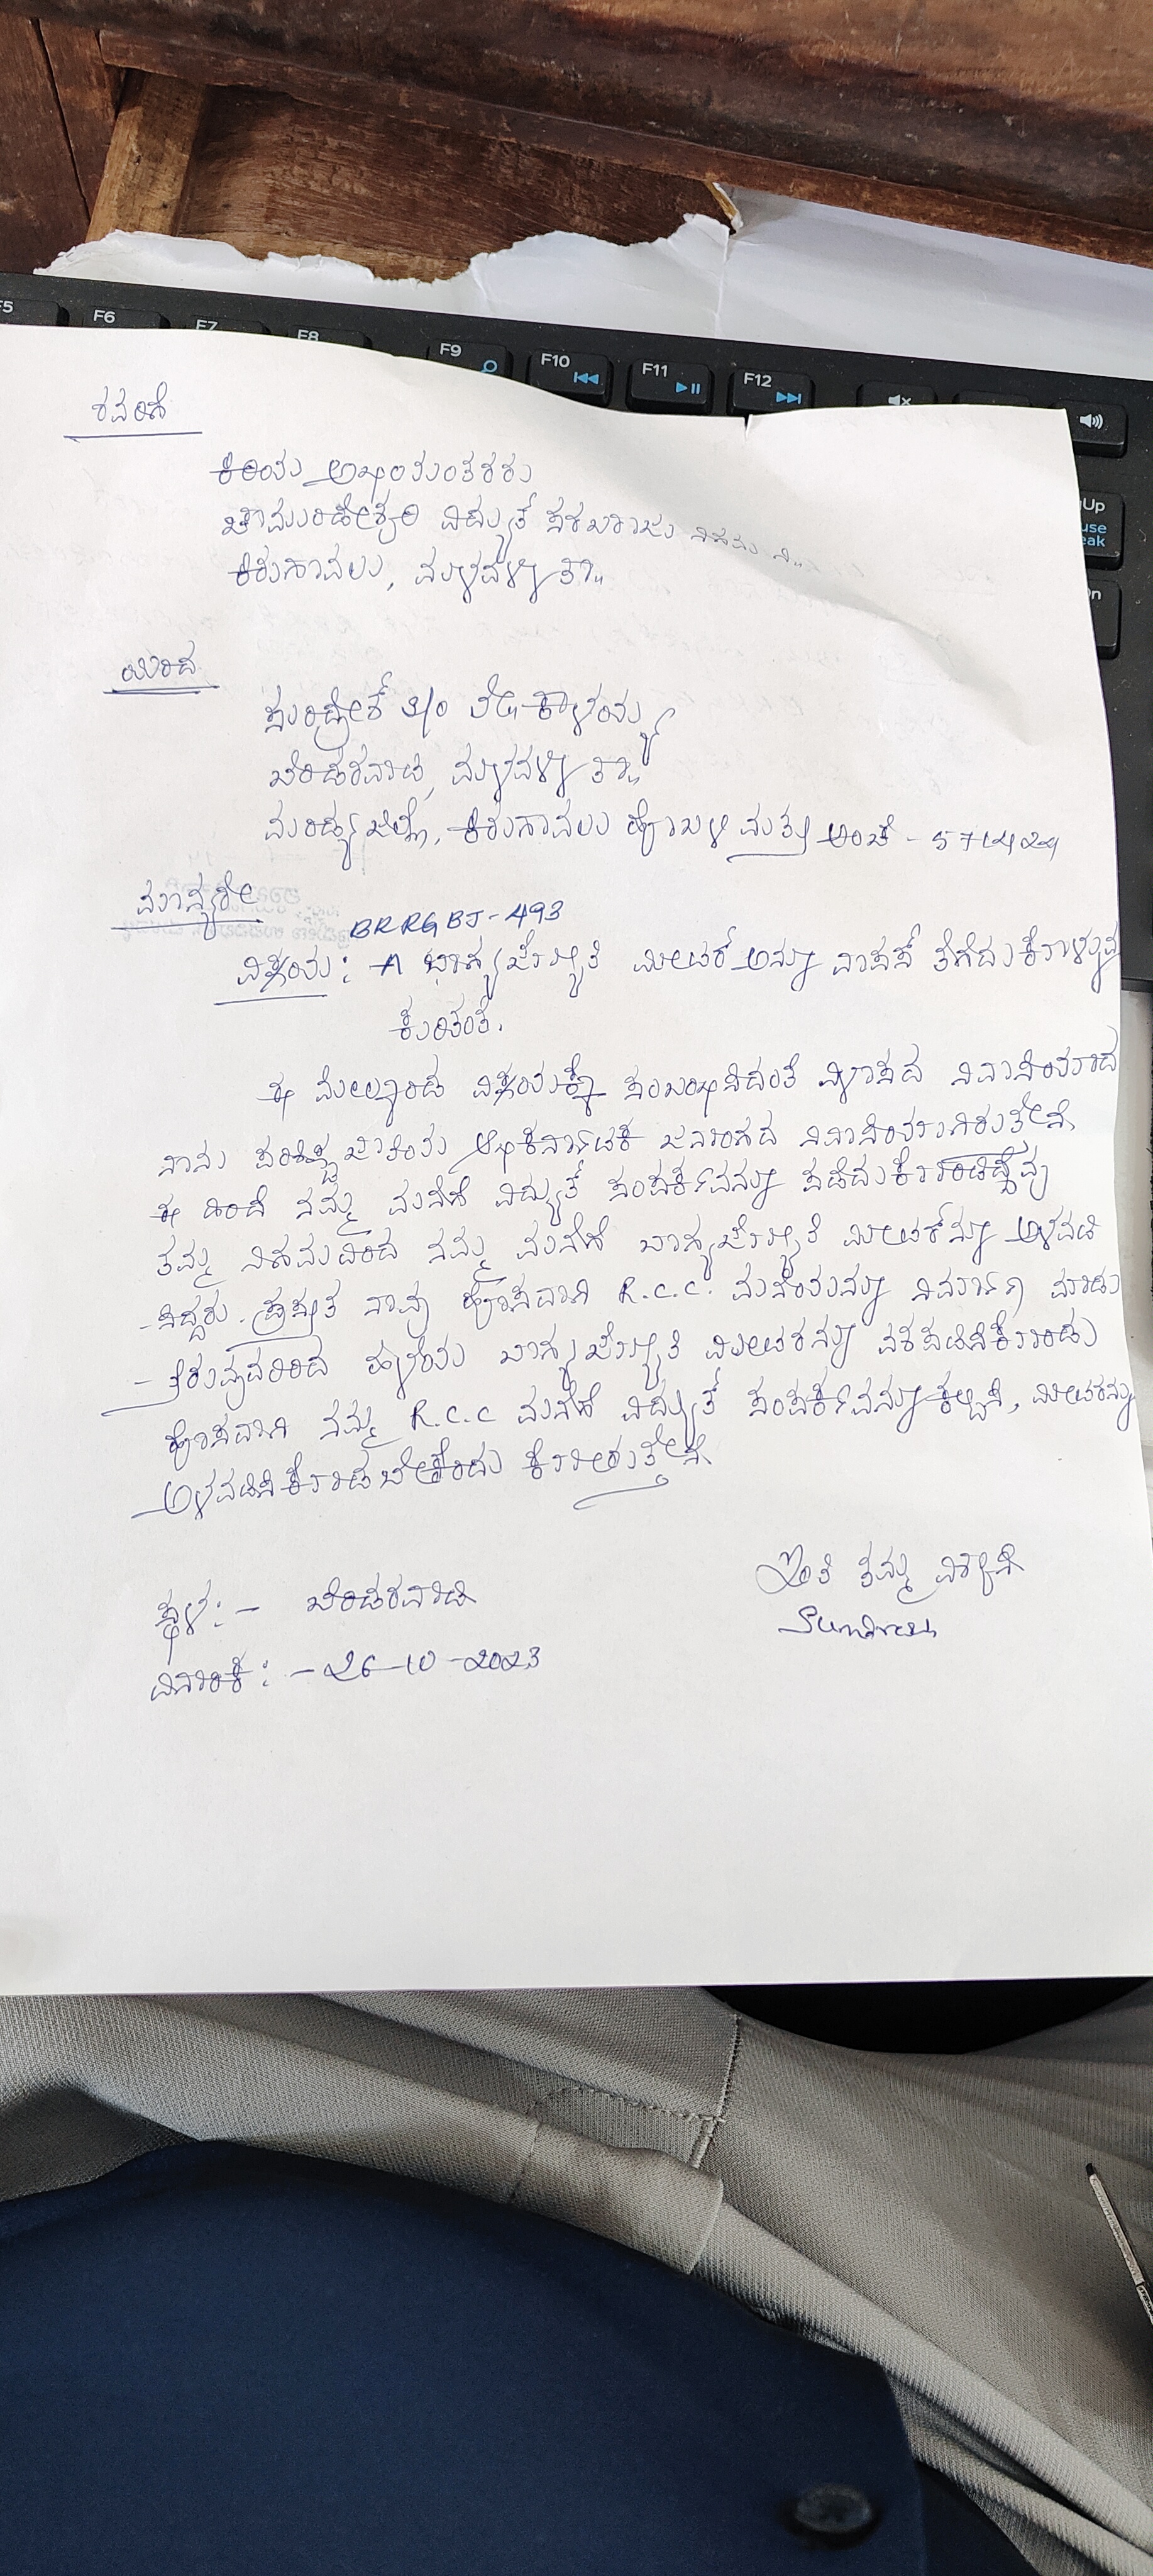 F5
F6
F7
F8
F9
F10
F11
F12
ರವರಿಗೆ
ಕಿರಿಯ ಅಭಿಯಂತರರು
ಚಾಮುಂಡೇಶ್ವರಿ ವಿದ್ಯುತ್ ಸರಬರಾಜು ನಿಗಮ ನಿ..
ಕಿರುಗಾವಲು, ಮಳವಳ್ಳಿ ತಾ..
ಯಿಂದ
ಸುಂದ್ರೇಶ್ S/o ಲೇ. ಕಾಳಯ್ಯ
ಬೆಂಡರವಾಡಿ, ಮಳವಳ್ಳಿ ತಾ..
ಮಂಡ್ಯ ಜಿಲ್ಲೆ, ಕಿರುಗಾವಲು ಹೋಬಳಿ ಮತ್ತು ಅಂಚೆ - 571424
ಮಾನ್ಯರೇ
BRRGBJ-493
ವಿಷಯ : ಭಾಗ್ಯಜ್ಯೋತಿ ಮೀಟರ್ ಅನ್ನು ವಾಪಸ್ ತೆಗೆದುಕೊಳ್ಳುವ
ಕುರಿತಂತೆ.
ಈ ಮೇಲ್ಕಂಡ ವಿಷಯಕ್ಕೆ ಸಂಬಂಧಿಸಿದಂತೆ ವಿಳಾಸದ ನಿವಾಸಿಯಾದ
ನಾನು ಪರಿಶಿಷ್ಟ ಜಾತಿಯ ಆದಿಕರ್ನಾಟಕ ಜನಾಂಗದ ನಿವಾಸಿಯಾಗಿರುತ್ತೇನೆ.
ಈ ಹಿಂದೆ ನಮ್ಮ ಮನೆಗೆ ವಿದ್ಯುತ್ ಸಂಪರ್ಕವನ್ನು ಪಡೆದುಕೊಂಡಿದ್ದೆವು
ತಮ್ಮ ನಿಗಮದಿಂದ ನಮ್ಮ ಮನೆಗೆ ಭಾಗ್ಯಜ್ಯೋತಿ ಮೀಟರನ್ನು ಅಳವಡಿ
-ಸಿದ್ದರು. ಪ್ರಸ್ತುತ ನಾವು ಹೊಸದಾಗಿ R.C.C. ಮನೆಯನ್ನು ನಿರ್ಮಾಣ ಮಾಡು
-ತ್ತಿರುವುದರಿಂದ ಹಳೆಯ ಭಾಗ್ಯಜ್ಯೋತಿ ಮೀಟರನ್ನು ವಶಪಡಿಸಿಕೊಂಡು
ಹೊಸದಾಗಿ ನಮ್ಮ R.C.C ಮನೆಗೆ ವಿದ್ಯುತ್ ಸಂಪರ್ಕವನ್ನು ಕಲ್ಪಿಸಿ, ಮೀಟರನ್ನು
ಅಳವಡಿಸಿಕೊಡಬೇಕೆಂದು ಕೋರುತ್ತೇನೆ.
ಇಂತಿ ತಮ್ಮ ವಿಶ್ವಾಸಿ
Sundresh
ಸ್ಥಳ :- ಬೆಂಡರವಾಡಿ
ದಿನಾಂಕ : -26-10-2023